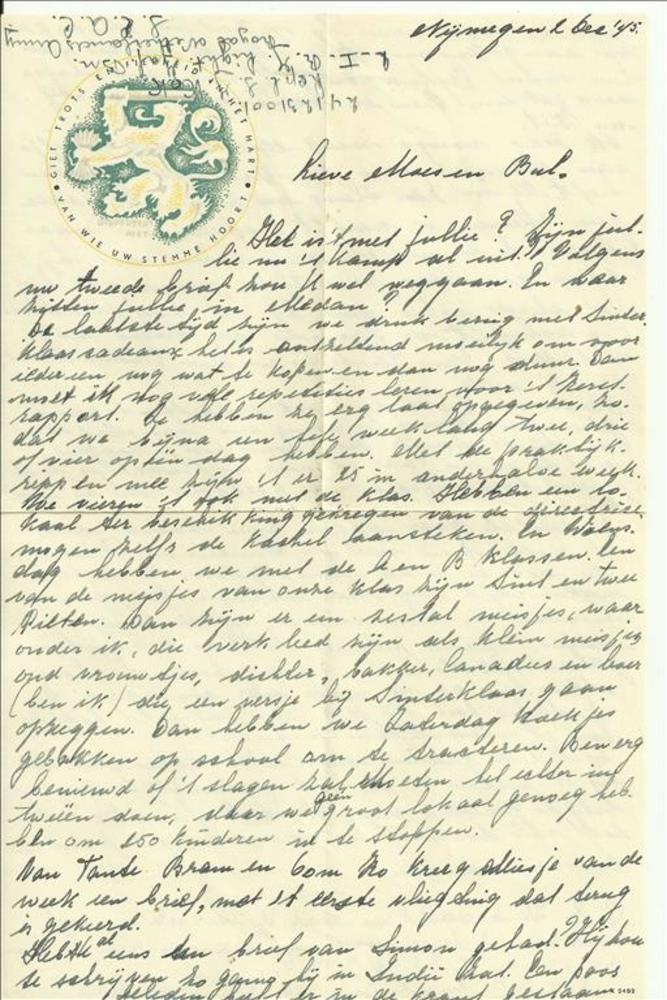 Nijmegen 2 Dec '45.
24123100
Kpl. S. Kok
L.I.B.K. Light
Royal Netherlands Army
S.E.A.C.
GIET TROTS EN IN HET HART
VAN WIE UW STEMME HOORT
Lieve Moes en Bul.
Hoe is 't met jullie? Zijn jul-
lie nu 't kamp al uit? Volgens
uw tweede brief zou U wel weggaan. En waar
zitten jullie in Medan?
De laatste tijd zijn we druk bezig met Sinter
klaascadeaux, het is ontzettend moeilijk om voor
iedereen nog wat te kopen en dan nog duur. Dan
moet ik nog vele repetities leren voor 't Kerst-
rapport. Ze hebben ze erg laat opgegeven, zo-
dat we bijna een hele week lang twee, drie
of vier op één dag hebben. Met de praktijk-
reppen mee zijn 't er 25 in anderhalve week.
We vieren 't ook met de klas. Hebben een lo-
kaal ter beschikking gekregen van de directrice,
mogen zelfs de kachel aansteken. En Woens-
dag hebben we met de A en B klassen. Een
van de meisjes van onze klas zijn Sint en twee
Pieten. Dan zijn er een zestal meisjes, waar
onder ik, die verkleed zijn als klein meisjes
oud vrouwtjes, dichter, bakker, Canadees en boer
(ben ik) die een versje bij Sinterklaas gaan
opzeggen. Dan hebben we Zaterdag koekjes
gebakken op school om te tracteren. Ben erg
benieuwd of 't slagen zal. Moeten het echter in
tweeën doen, daar we geen groot lokaal genoeg heb-
ben om 250 kinderen in te stoppen.
Van Tante Bram en Oom Ko kreeg van de
week een brief, met 't eerste vliegding dat terug
is gekeerd.
Hebt U al eens een brief van Simon gehad? Hij zou
te schrijven zo gauw hij in Indië zat. Een poos
geleden heeft er in de krant gestaan